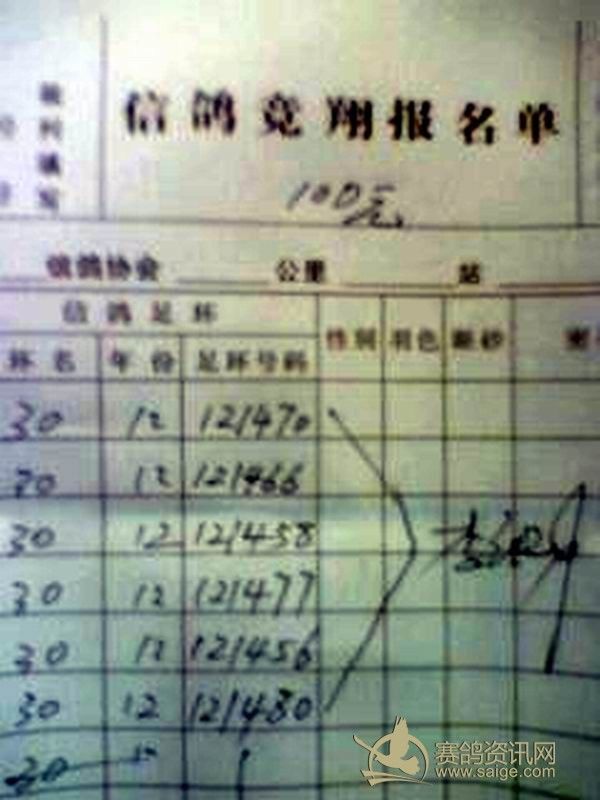 信鸽竞翔报名单
100元
信鸽协会 公里 站
信鸽足环
环名 年份 足环号码 性别 羽色 眼砂
30 12 121470
30 12 121466
30 12 121458
30 12 121477
30 12 121456
30 12 121480
30 12
赛鸽资讯网
www.saige.com